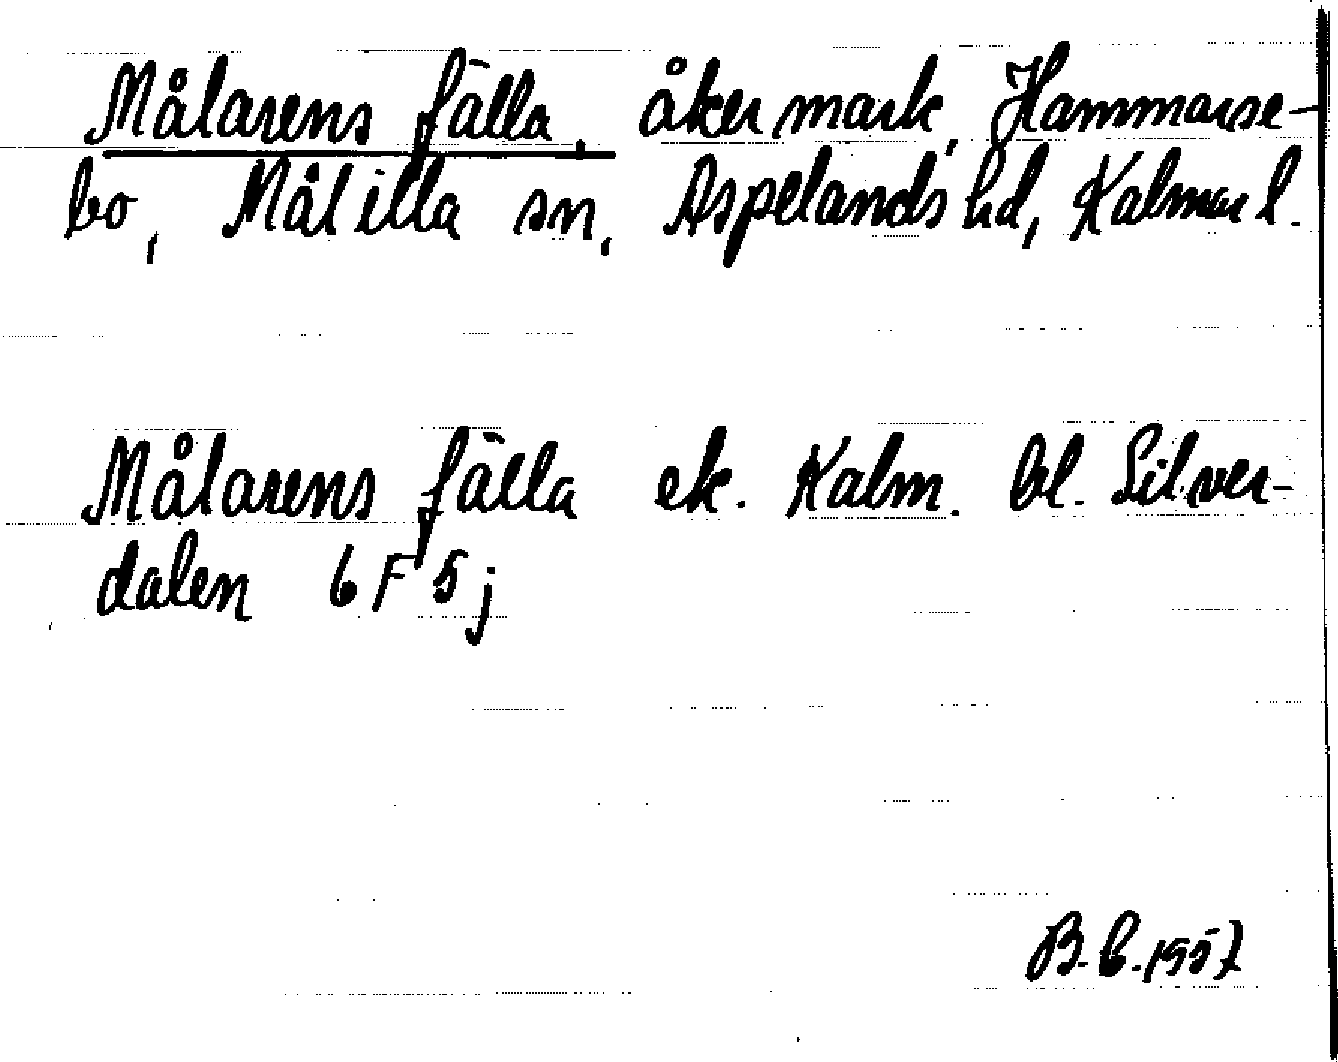 Målarens fälla, åkermark, Hammarse-
bo, Målilla sn, Aspelands hd, Kalmar l.
Målarens fälla ek. Kalm. bl. Silver-
dalen 6 F 5 j
B.E. 1957